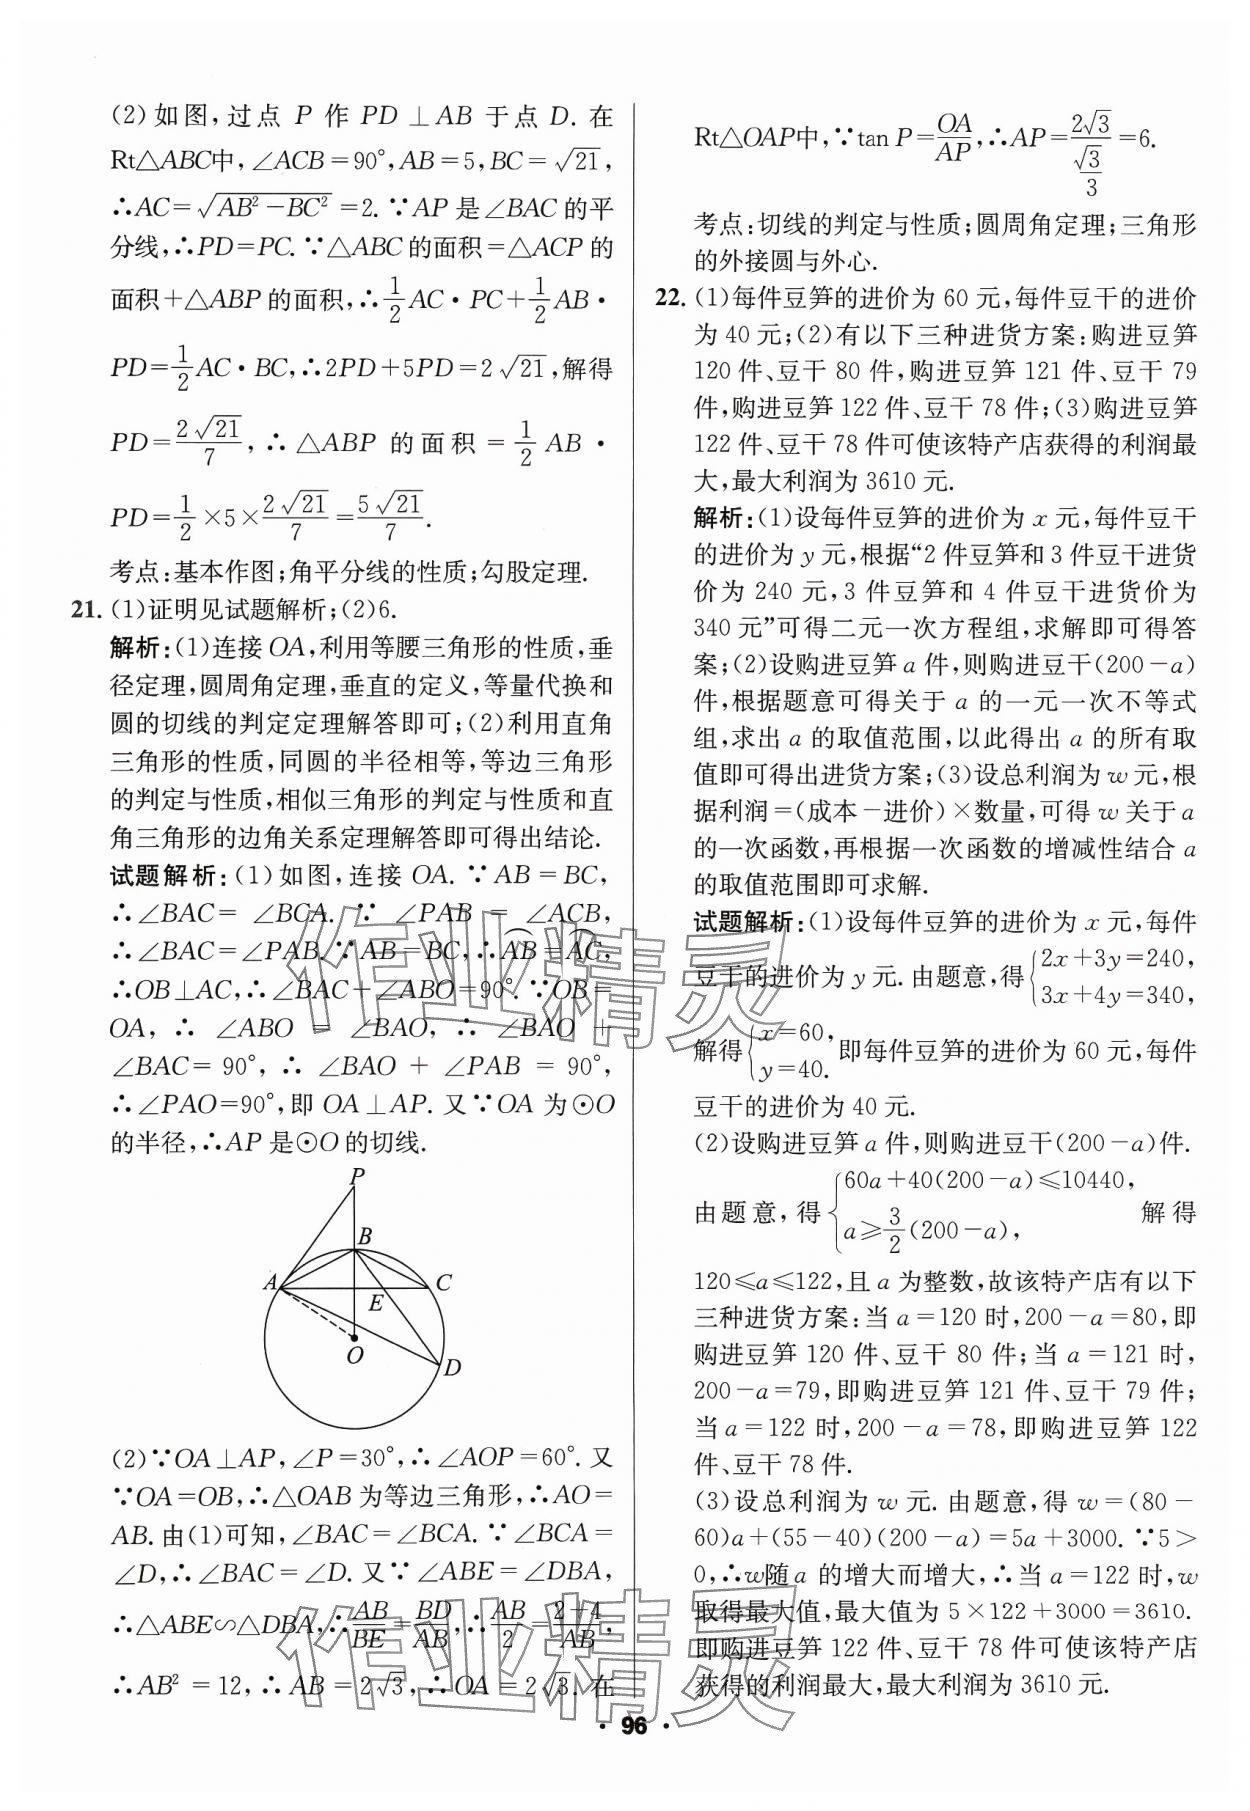 (2)如图,过点 P 作 PD⊥AB 于点 D. 在
Rt△ABC中,∠ACB=90°,AB=5,BC=√21,
∴AC=√(AB²-BC²)=2. ∵AP 是∠BAC 的平
分线,∴PD=PC. ∵△ABC 的面积=△ACP 的
面积+△ABP 的面积,∴1/2 AC·PC+1/2 AB·
PD=1/2 AC·BC,∴2PD+5PD=2√21,解得
PD=2√21/7,∴△ABP 的面积=1/2 AB·
PD=1/2×5×2√21/7=5√21/7.
考点:基本作图;角平分线的性质;勾股定理.
21. (1)证明见试题解析;(2)6.
解析:(1)连接 OA,利用等腰三角形的性质,垂
径定理,圆周角定理,垂直的定义,等量代换和
圆的切线的判定定理解答即可;(2)利用直角
三角形的性质,同圆的半径相等,等边三角形
的判定与性质,相似三角形的判定与性质和直
角三角形的边角关系定理解答即可得出结论.
试题解析:(1)如图,连接 OA. ∵AB=BC,
∴∠BAC=∠BCA. ∵∠PAB=∠ACB,
∴∠BAC=∠PAB. ∵AB=BC,∴AB⌢=AC⌢,
∴OB⊥AC,∴∠BAC+∠ABO=90°. ∵OB=
OA,∴∠ABO=∠BAO,∴∠BAO+
∠BAC=90°,∴∠BAO+∠PAB=90°,
∴∠PAO=90°,即 OA⊥AP. 又∵OA 为⊙O
的半径,∴AP 是⊙O 的切线.
P
B
A
C
E
O
D
(2)∵OA⊥AP,∠P=30°,∴∠AOP=60°. 又
∵OA=OB,∴△OAB 为等边三角形,∴AO=
AB. 由(1)可知,∠BAC=∠BCA. ∵∠BCA=
∠D,∴∠BAC=∠D. 又∵∠ABE=∠DBA,
∴△ABE∽△DBA,∴AB/BE=BD/AB,∴AB/2=(2+4)/AB,
∴AB²=12,∴AB=2√3,∴OA=2√3. 在
Rt△OAP中,∵tan P=OA/AP,∴AP=2√3/(√3/3)=6.
考点:切线的判定与性质;圆周角定理;三角形
的外接圆与外心.
22. (1)每件豆笋的进价为 60 元,每件豆干的进价
为 40 元;(2)有以下三种进货方案:购进豆笋
120 件、豆干 80 件,购进豆笋 121 件、豆干 79
件,购进豆笋 122 件、豆干 78 件;(3)购进豆笋
122 件、豆干 78 件可使该特产店获得的利润最
大,最大利润为 3610 元.
解析:(1)设每件豆笋的进价为 x 元,每件豆干
的进价为 y 元,根据“2 件豆笋和 3 件豆干进货
价为 240 元,3 件豆笋和 4 件豆干进货价为
340 元”可得二元一次方程组,求解即可得答
案;(2)设购进豆笋 a 件,则购进豆干(200-a)
件,根据题意可得关于 a 的一元一次不等式
组,求出 a 的取值范围,以此得出 a 的所有取
值即可得出进货方案;(3)设总利润为 w 元,根
据利润=(成本-进价)×数量,可得 w 关于 a
的一次函数,再根据一次函数的增减性结合 a
的取值范围即可求解.
试题解析:(1)设每件豆笋的进价为 x 元,每件
豆干的进价为 y 元. 由题意,得{2x+3y=240, 3x+4y=340,
解得{x=60, y=40. 即每件豆笋的进价为 60 元,每件
豆干的进价为 40 元.
(2)设购进豆笋 a 件,则购进豆干(200-a)件.
由题意,得{60a+40(200-a)≤10440, a≥3/2(200-a), 解得
120≤a≤122,且 a 为整数,故该特产店有以下
三种进货方案:当 a=120 时,200-a=80,即
购进豆笋 120 件、豆干 80 件;当 a=121 时,
200-a=79,即购进豆笋 121 件、豆干 79 件;
当 a=122 时,200-a=78,即购进豆笋 122
件、豆干 78 件.
(3)设总利润为 w 元. 由题意,得 w=(80-
60)a+(55-40)(200-a)=5a+3000. ∵5>
0,∴w随a 的增大而增大,∴当 a=122 时,w
取得最大值,最大值为 5×122+3000=3610.
即购进豆笋 122 件、豆干 78 件可使该特产店
获得的利润最大,最大利润为 3610 元.
· 96 ·
作业精灵
作业精灵